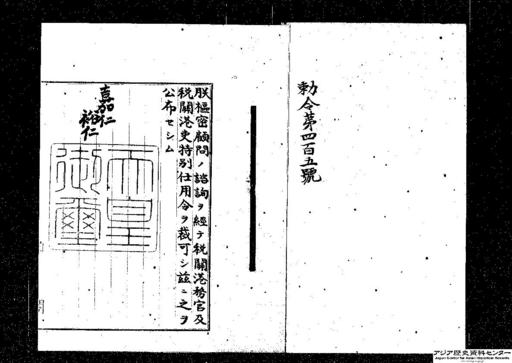 勅令第四百五號
朕樞密顧問ノ諮詢ヲ經テ税關港務官及
税關港吏特別任用令ヲ裁可シ茲ニ之ヲ
公布セシム
嘉仁
裕仁
天皇
御璽
アジア歴史資料センター
Japan Center for Asian Historical Records